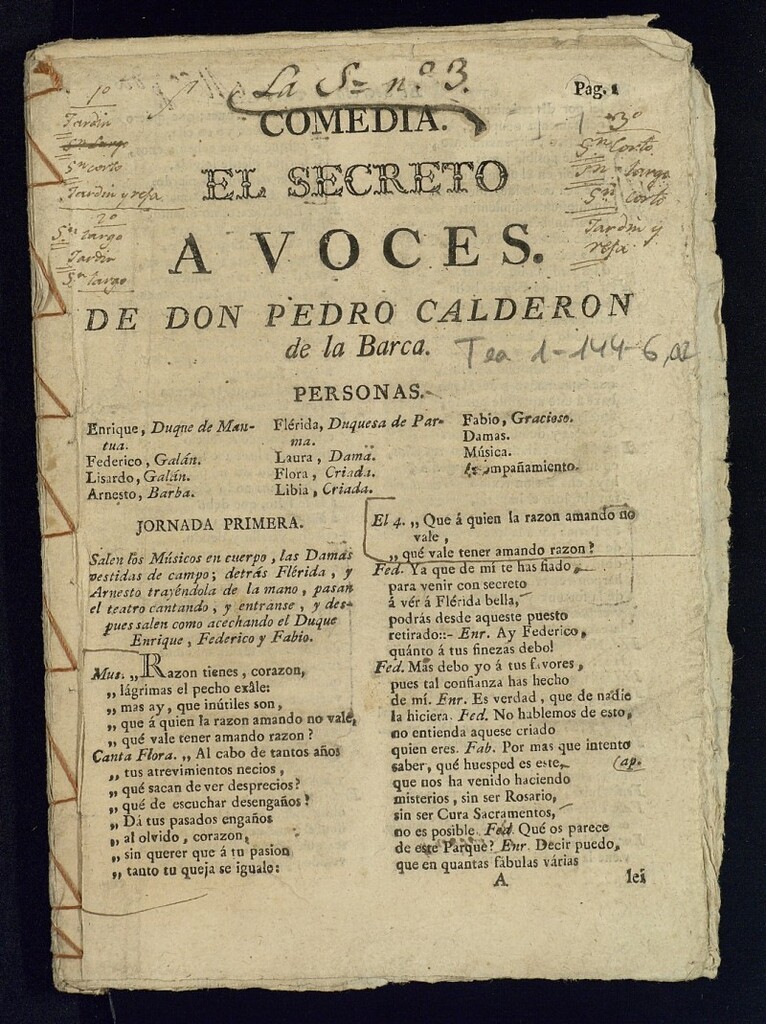 La S= n.º 3.
Pag. 1
1º
Jardin
Sn corto
Jardin y reja
2º
Sn largo
Jardin
Sn largo
3º
Sn Corto
Sn largo
Sn Corto
Jardin y
reja
COMEDIA.
EL SECRETO
A VOCES.
DE DON PEDRO CALDERON
de la Barca.
Tea 1-144-6, a2
PERSONAS.
Enrique, Duque de Man-
tua.
Federico, Galán.
Lisardo, Galán.
Arnesto, Barba.
Flérida, Duquesa de Par-
ma.
Laura, Dama.
Flora, Criada.
Libia, Criada.
Fabio, Gracioso.
Damas.
Música.
Acompañamiento.
JORNADA PRIMERA.
Salen los Músicos en cuerpo, las Damas
vestidas de campo; detrás Flérida, y
Arnesto trayéndola de la mano, pasan
el teatro cantando, y entranse, y des-
pues salen como acechando el Duque
Enrique, Federico y Fabio.
Mus. ,, Razon tienes, corazon,
,, lágrimas el pecho exâle:
,, mas ay, que inútiles son,
,, que á quien la razon amando no vale,
,, qué vale tener amando razon?
Canta Flora. ,, Al cabo de tantos años
,, tus atrevimientos necios,
,, qué sacan de ver desprecios?
,, qué de escuchar desengaños?
,, Dá tus pasados engaños
,, al olvido, corazon,
,, sin querer que á tu pasion
,, tanto tu queja se iguale:
El 4. ,, Que á quien la razon amando no
vale,
,, qué vale tener amando razon?
Fed. Ya que de mí te has fiado,
para venir con secreto
á vér á Flérida bella,
podrás desde aqueste puesto
retirado::- Enr. Ay Federico,
quánto á tus finezas debo!
Fed. Mas debo yo á tus favores,
pues tal confianza has hecho
de mí. Enr. Es verdad, que de nadie
la hiciera. Fed. No hablemos de esto,
no entienda aquese criado
quien eres. Fab. Por mas que intento
saber, qué huesped es este, (ap.
que nos ha venido haciendo
misterios, sin ser Rosario,
sin ser Cura Sacramentos,
no es posible. Fed. Qué os parece
de este Parque? Enr. Decir puedo,
que en quantas fábulas várias
A
lei